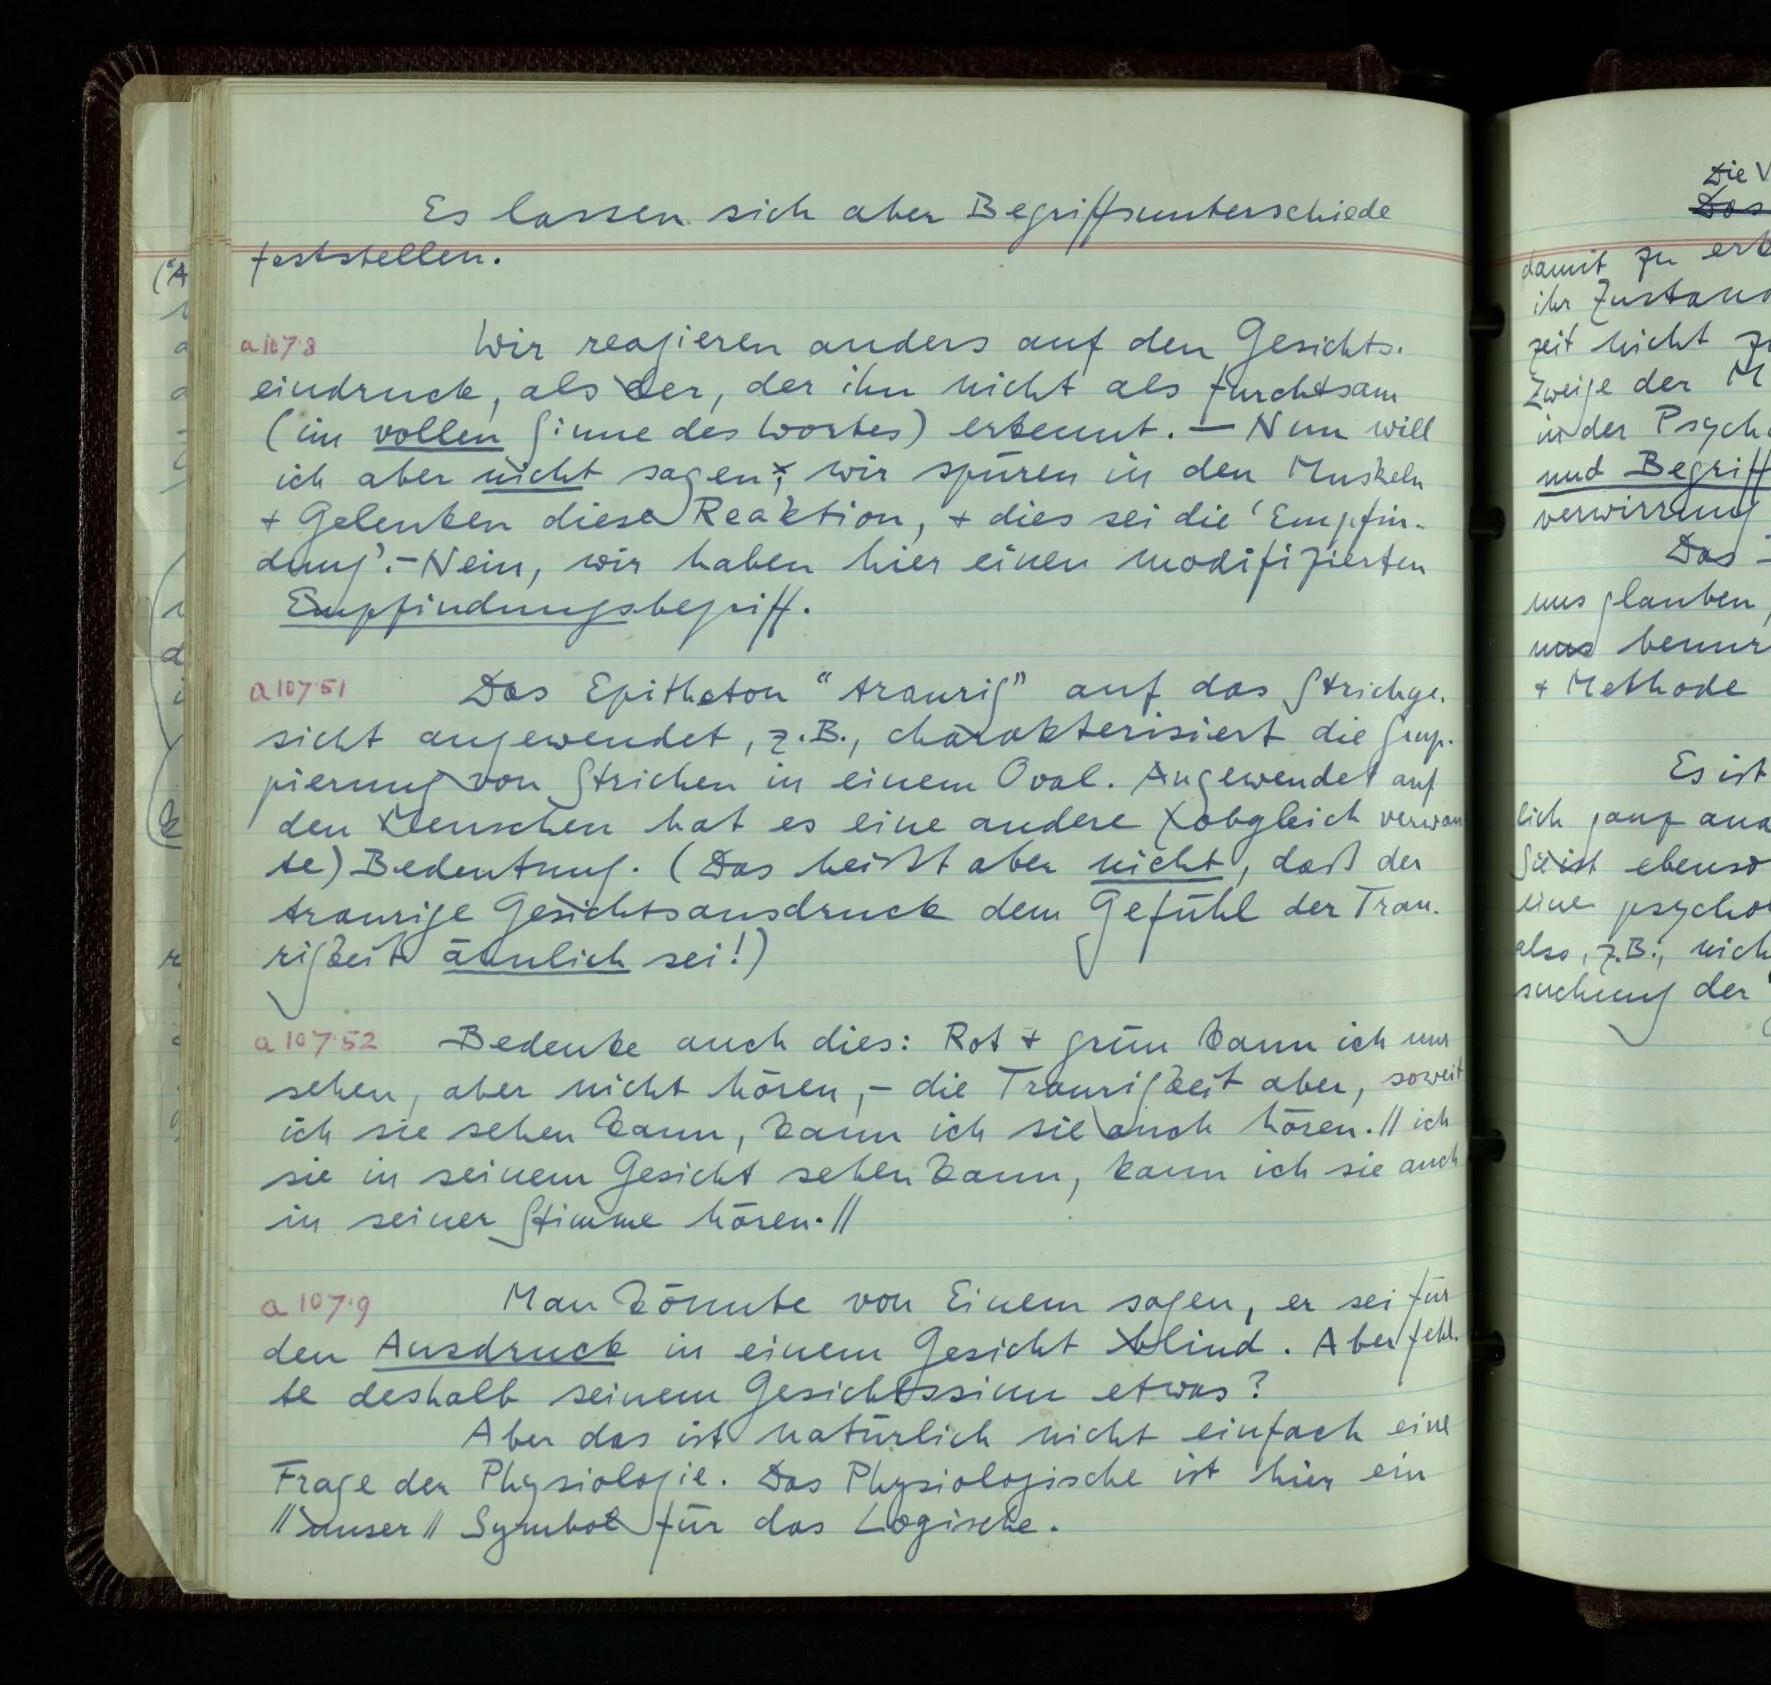 Es lassen sich aber Begriffsunterschiede
feststellen.
a 107·8 Wir reagieren anders auf den Gesichts-
eindruck, als der, der ihn nicht als furchtsam
(im vollen Sinne des Wortes) erkennt. – Nun will
ich aber nicht sagen, wir spüren in den Muskeln
+ Gelenken diese Reaktion, + dies sei die ‘Empfin-
dung’. – Nein, wir haben hier einen modifizierten
Empfindungsbegriff.
a 107·51 Das Epitheton “traurig” auf das Strichge-
sicht angewendet, z.B., charakterisiert die Grup-
pierung von Strichen in einem Oval. Angewendet auf
den Menschen hat es eine andere (obgleich verwan
te) Bedeutung. (Das heißt aber nicht, daß der
traurige Gesichtsausdruck dem Gefühl der Trau-
rigkeit ähnlich sei!)
a 107·52 Bedenke auch dies: Rot + grün kann ich nur
sehen, aber nicht hören, – die Traurigkeit aber, soweit
ich sie sehen kann, kann ich sie auch hören. // ich
sie in seinem Gesicht sehen kann, kann ich sie auch
in seiner Stimme hören. //
a 107·9 Man könnte von Einem sagen, er sei für
den Ausdruck in einem Gesicht blind. Aber fehl-
te deshalb seinem Gesichtssinn etwas?
Aber das ist natürlich nicht einfach eine
Frage der Physiologie. Das Physiologische ist hier ein
// unser // Symbol für das Logische.
Die V
Das
damit zu erk
ihr Zustand
zeit nicht zu
Zweige der M
in der Psych
und Begriff
verwirrung
Das
uns glauben,
uns beunr
+ Methode
Es ist
lich ganz ana
Sie ist ebenso
eine psycho
also, z.B., nich
suchung der